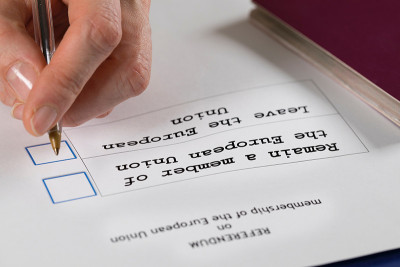 REFERENDUM
on
membership of the European Union
Remain a member of
the European Union
Leave the European
Union